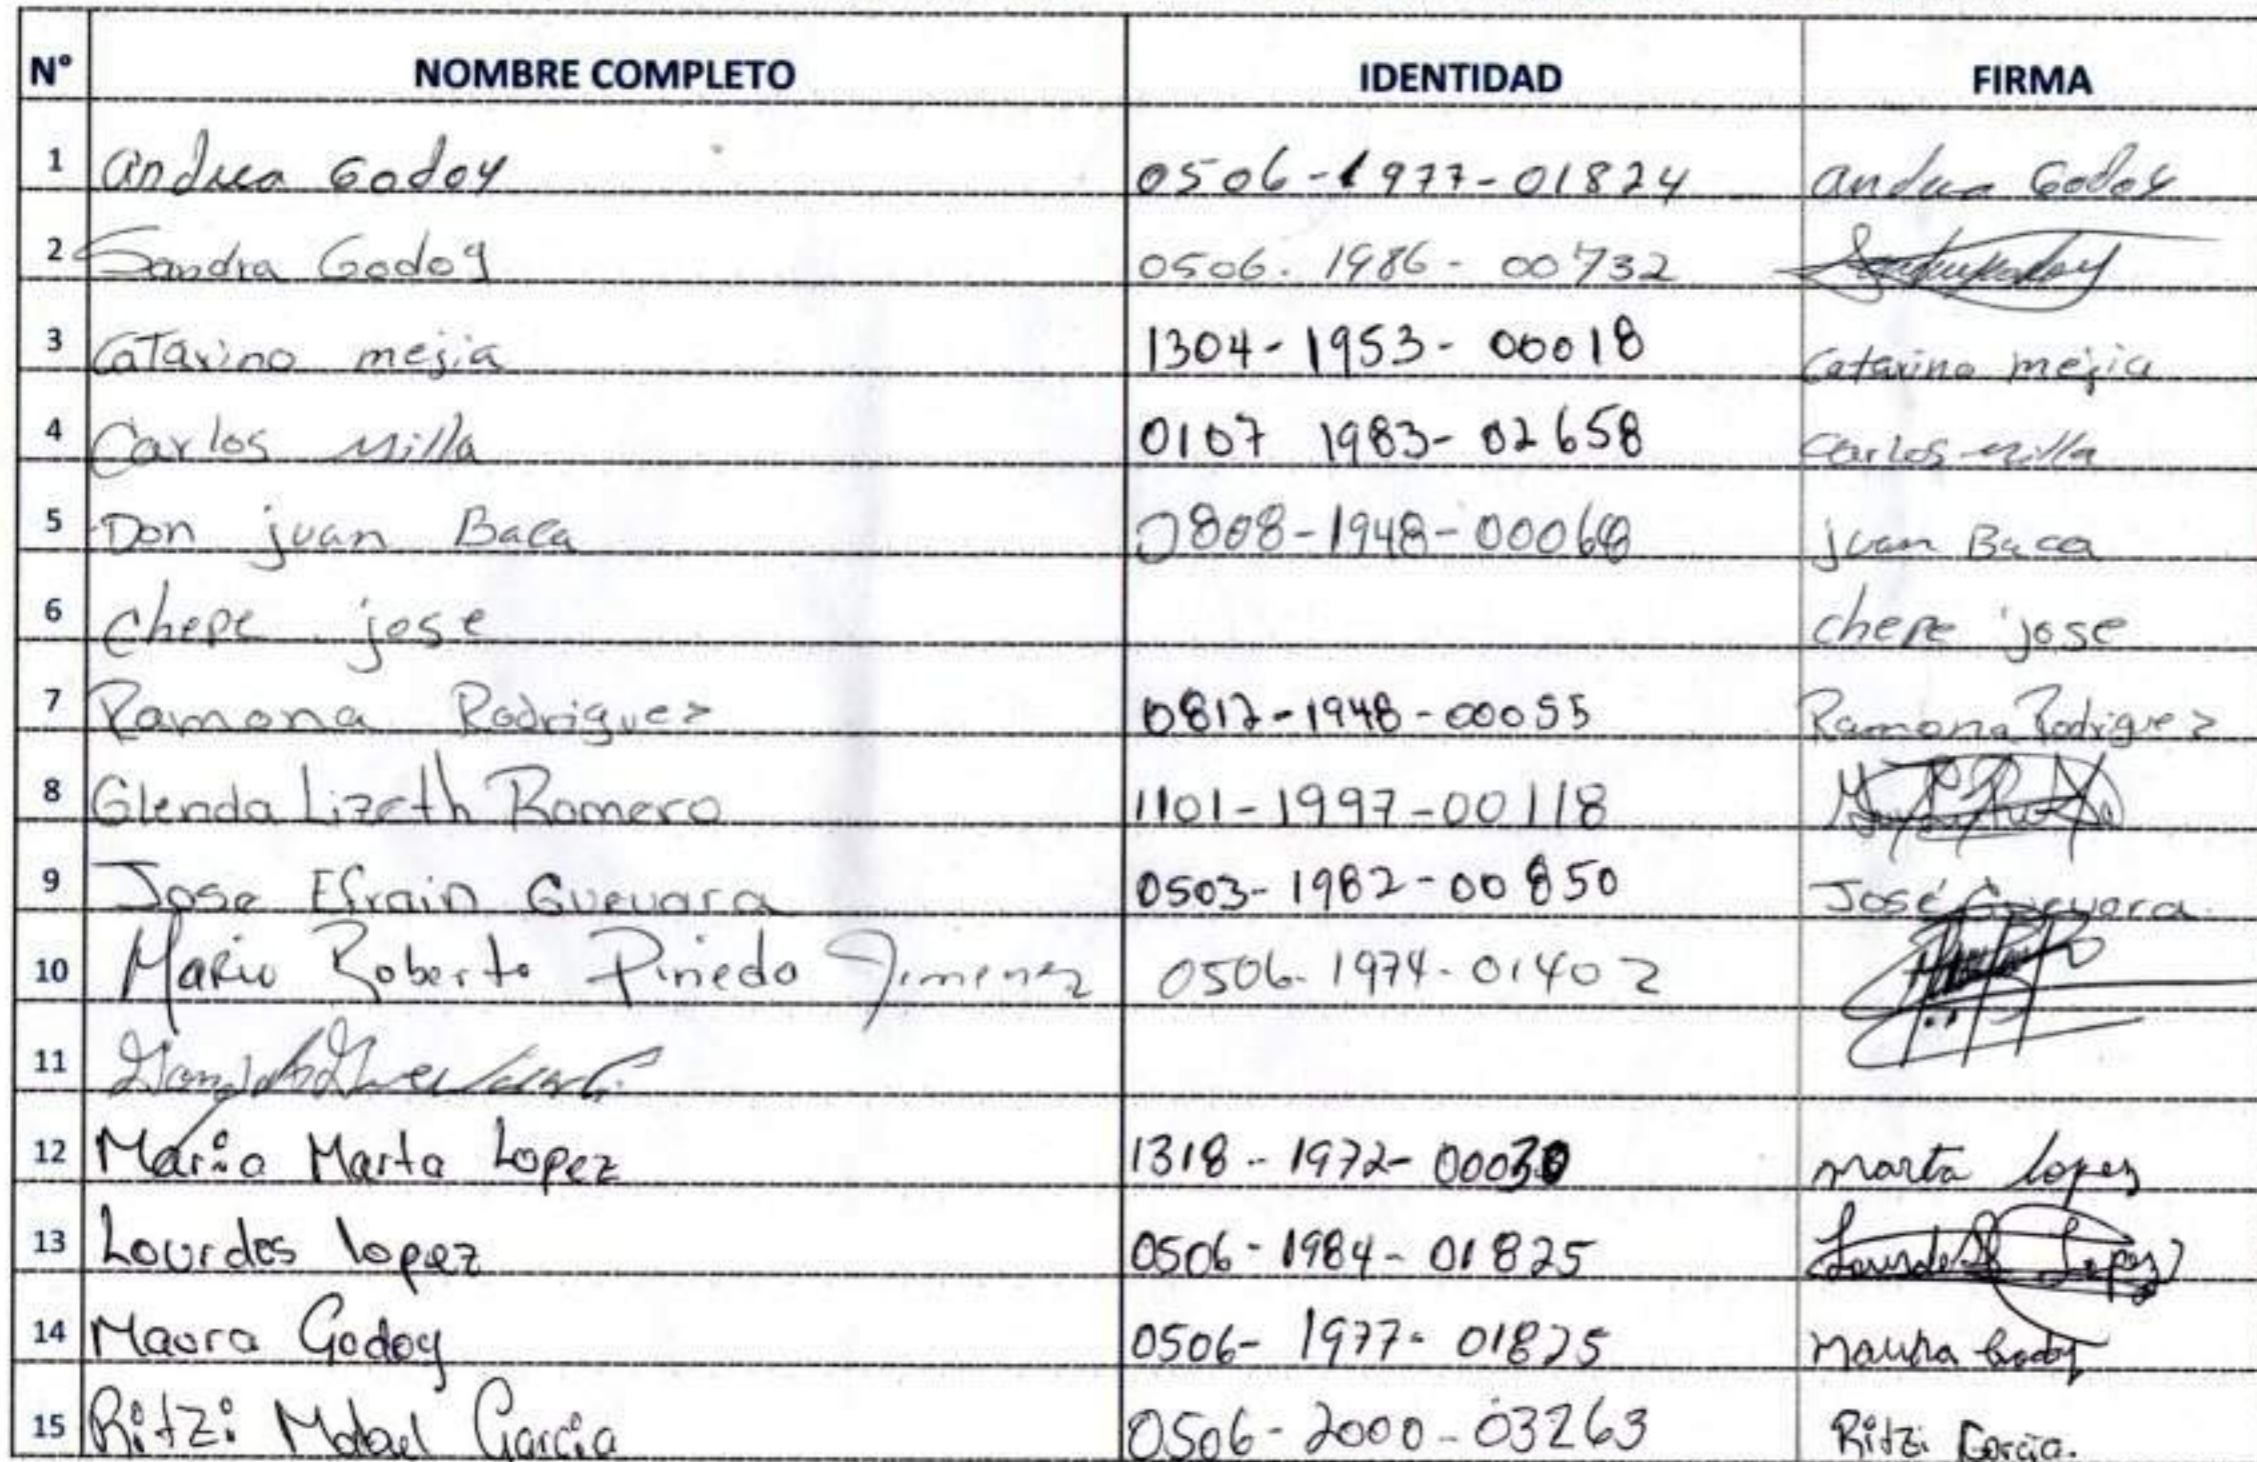 N° NOMBRE COMPLETO IDENTIDAD FIRMA
1 Andrea Godoy 0506-1977-01824 Andrea Godoy
2 Sandra Godoy 0506-1986-00732
3 CaTarino mejia 1304-1953-00018 Catarino mejia
4 Carlos Milla 0107 1983-02658 Carlos Milla
5 Don juan Baca 0808-1948-00068 juan Baca
6 Chepe jose chepe jose
7 Ramona Rodriguez 0812-1948-00055 Ramona Rodriguez
8 Glenda Lizeth Romero 1101-1997-00118
9 Jose Efrain Guevara 0503-1982-00850 José Guevara.
10 Mario Roberto Pinedo Jimenez 0506-1974-01402
11
12 Maria Marta Lopez 1318-1972-00030 marta lopez
13 Lourdes lopez 0506-1984-01825 Lourdes Lopez
14 Maura Godoy 0506-1977-01825 Maura Godoy
15 Ritzi Garcia 0506-2000-03263 Ritzi Garcia.